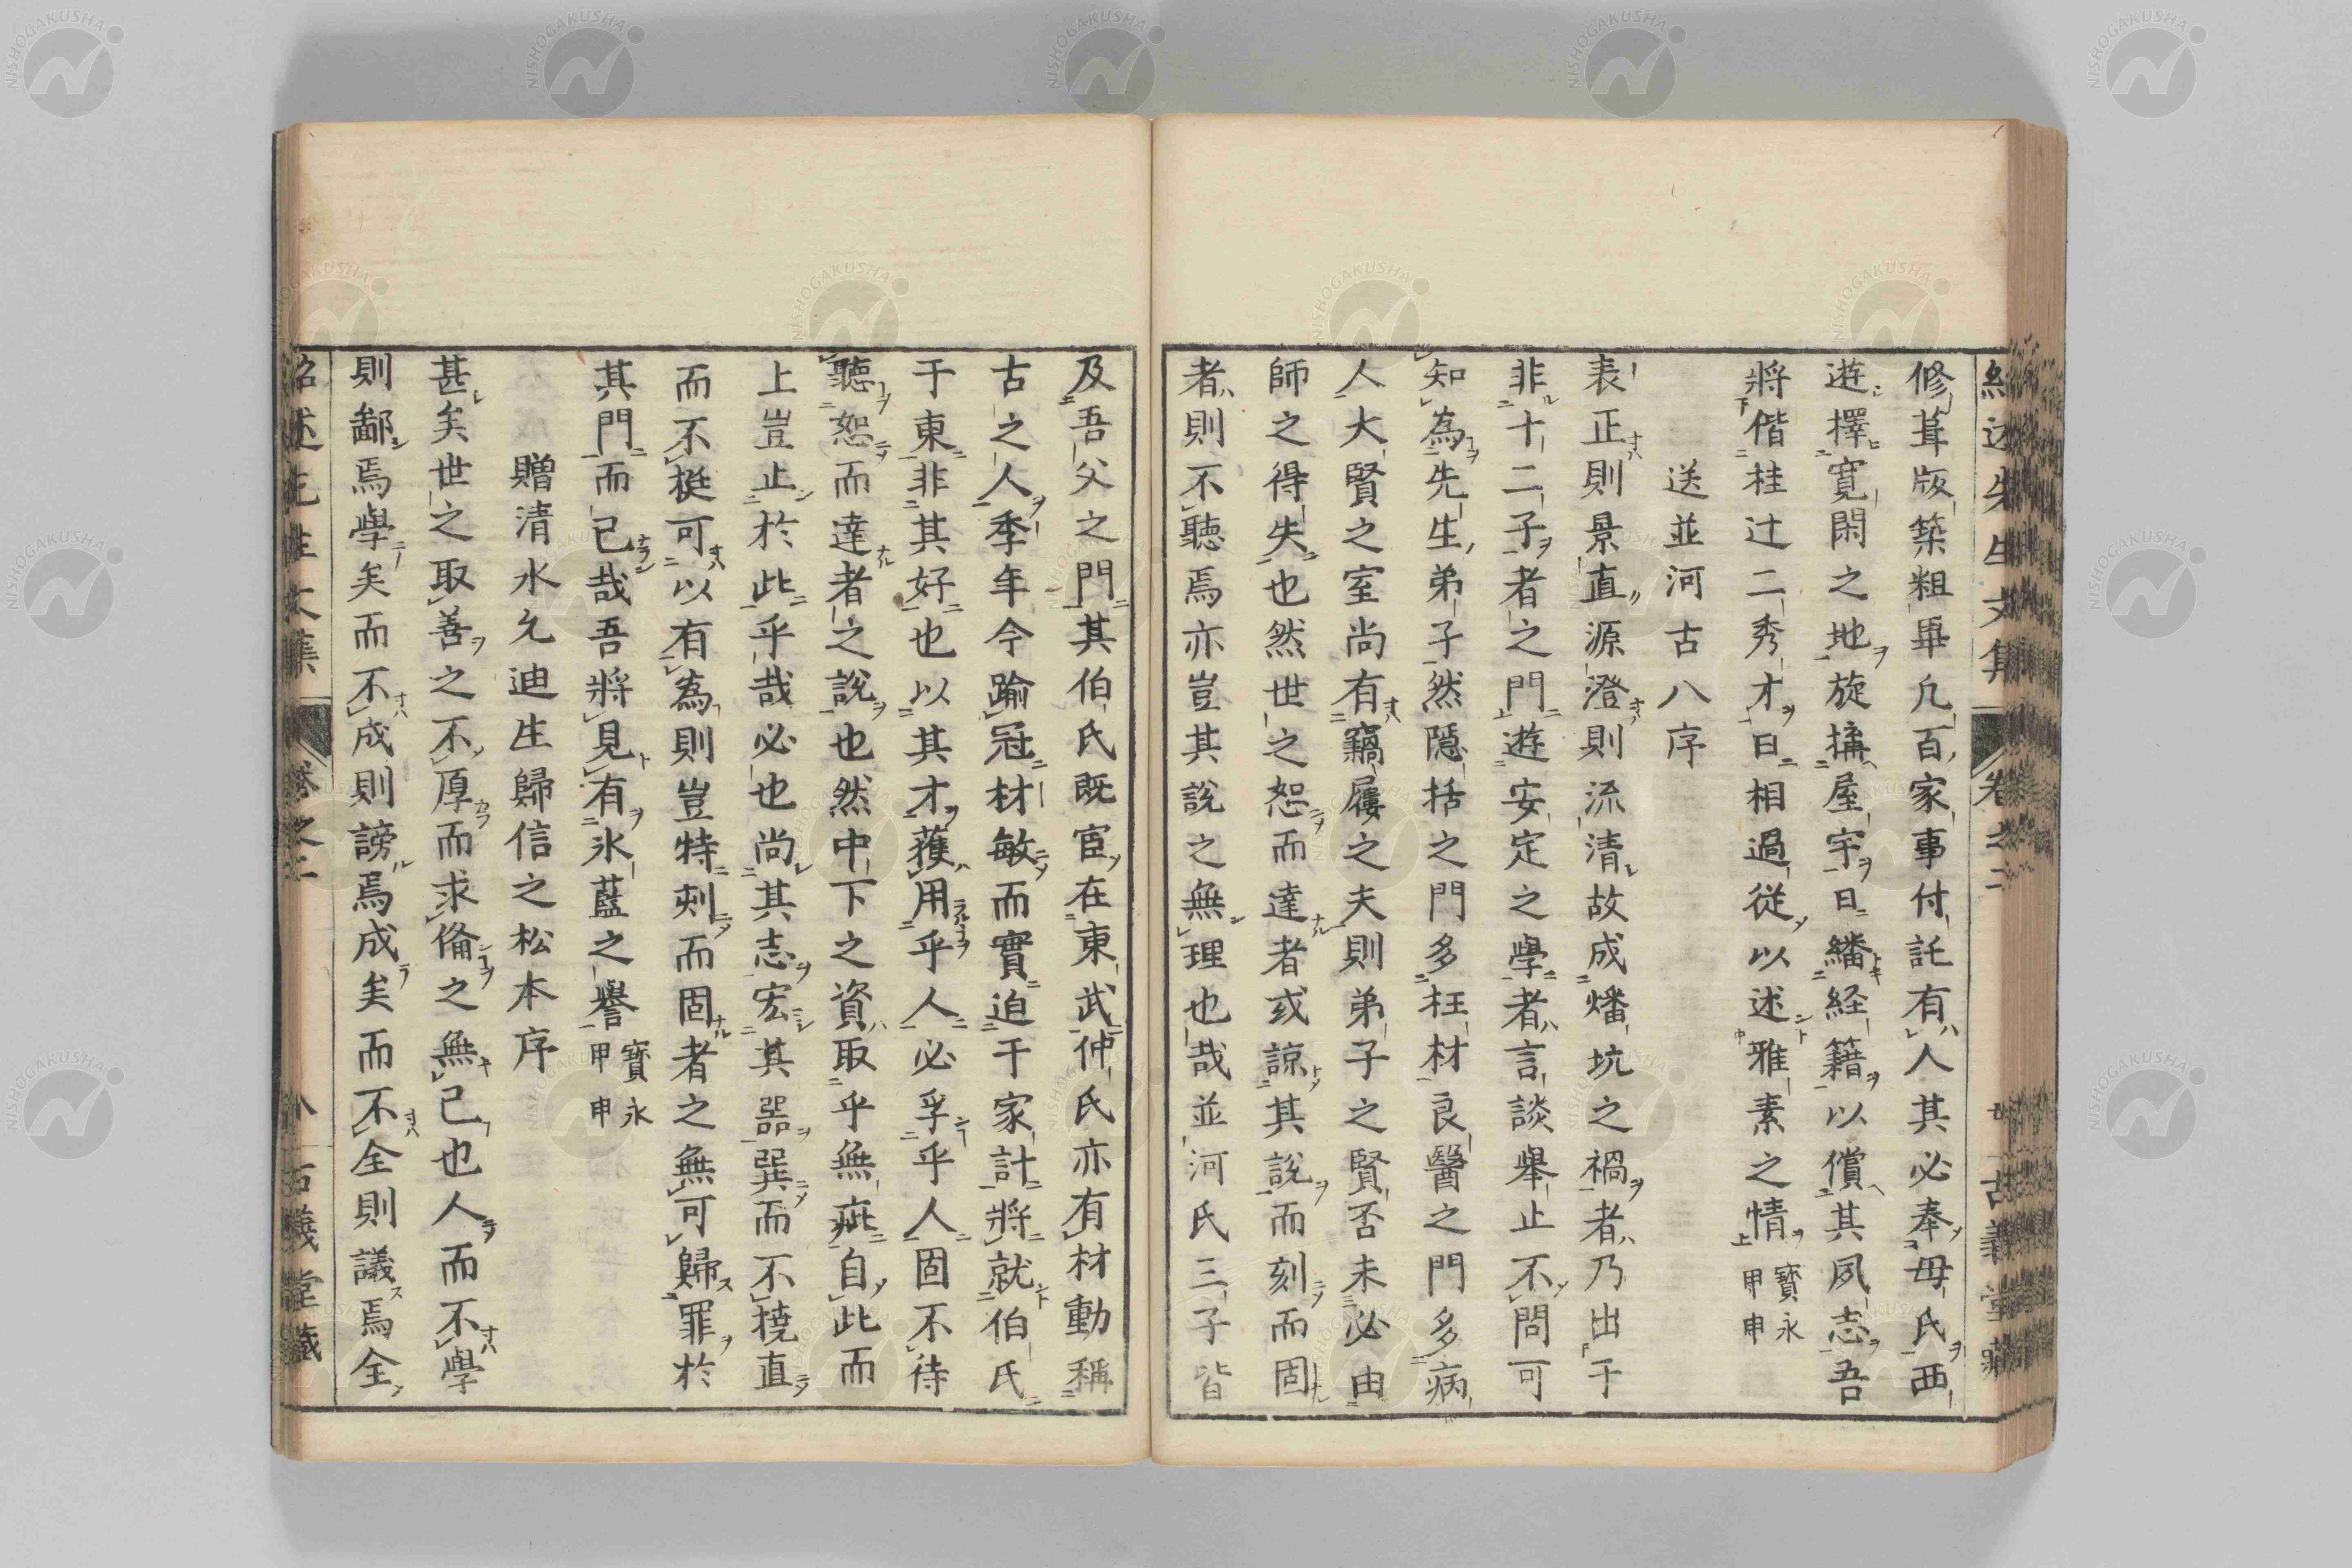 修葺版築粗畢凡百家事付託有人其必奉母氏西
遊擇寛閑之地旋搆屋宇日繙経籍以償其夙志吾
將偕桂辻二秀才日相過從以述雅素之情寶永甲申
送並河古八序
表正則景直源澄則流清故成燔坑之禍者乃出于
非十二子者之門遊安定之學者言談舉止不問可
知為先生弟子然隱括之門多枉材良醫之門多病
人大賢之室尚有竊屨之夫則弟子之賢否未必由
師之得失也然世之恕而達者或諒其說而刻而固
者則不聽焉亦豈其說之無理也哉並河氏三子皆
及吾父之門其伯氏既宦在東武仲氏亦有材動稱
古之人季年今踰冠材敏而實迫于家計將就伯氏
于東非其好也以其才獲用乎人必孚乎人固不待
聽恕而達者之說也然中下之資取乎無疵自此而
上豈止於此乎哉必也尚其志宏其器巽而不撓直
而不挺可以有為則豈特刻而固者之無可歸罪於
其門而已哉吾將見有氷藍之譽寶永甲申
贈清水允迪生歸信之松本序
甚矣世之取善之不厚而求偹之無已也人而不學
則鄙焉學矣而不成則謗焉成矣而不全則議焉全
紹述先生文集 卷之二 古義堂藏